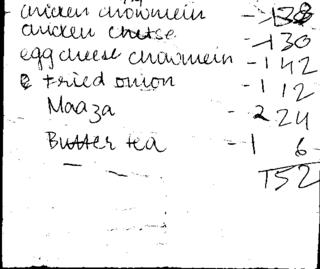 chicken chowmein - 1 38
chicken cheese - 1 30
egg cheese chowmein - 1 42
fried onion - 1 12
Maaza - 2 24
Butter tea - 1 6
152